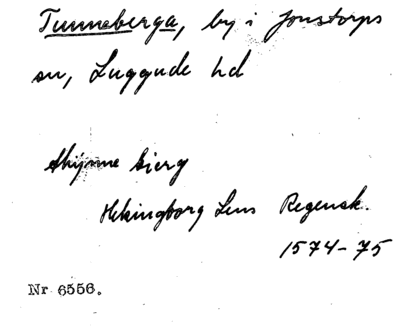 Tunneberga, by i Jonstorps
sn, Luggude hd
bierg
Helsingborg Lens Regensk.
1574-75
Nr 6556.